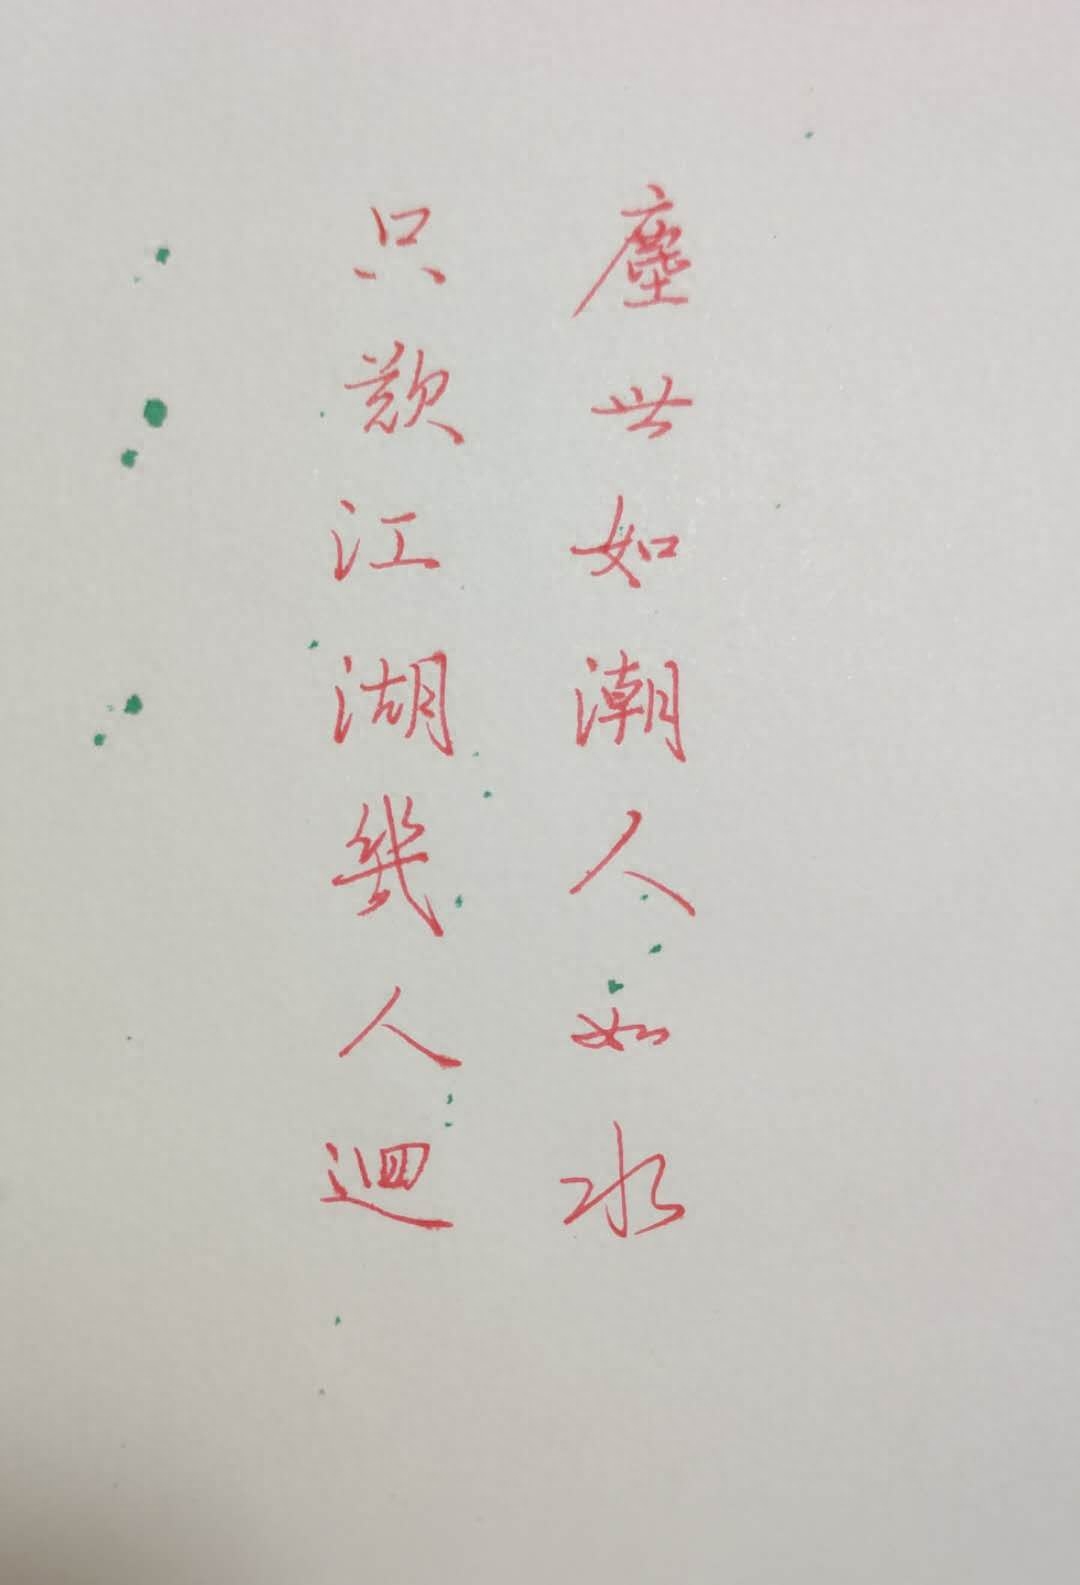 塵世如潮人如水
只歎江湖幾人迴